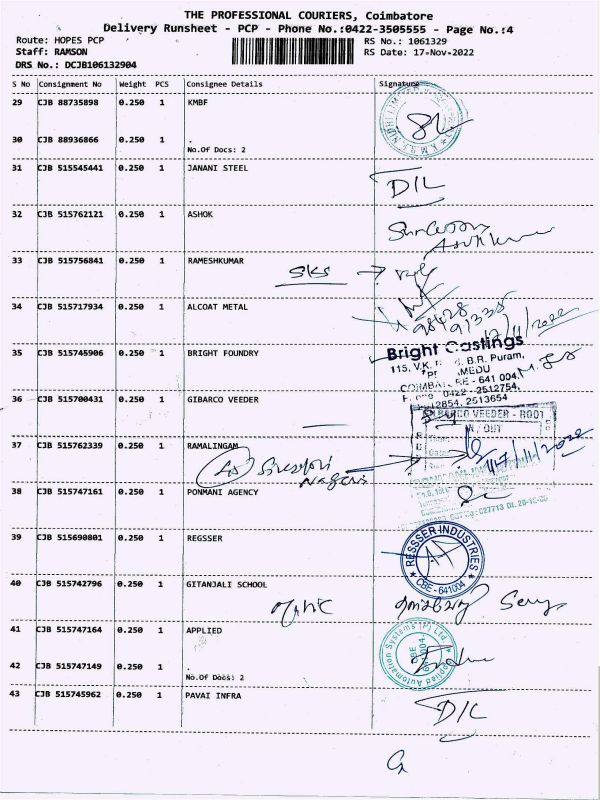 THE PROFESSIONAL COURIERS, Coimbatore
Delivery Runsheet - PCP - Phone No.:0422-3505555 - Page No.:4
Route: HOPES PCP RS No.: 1061329
Staff: RAMSON RS Date: 17-Nov-2022
DRS No.: DCJB106132904
S No Consignment No Weight PCS Consignee Details Signature
29 CJB 88735898 0.250 1 KMBF
30 CJB 88936866 0.250 1 .
No.Of Docs: 2
31 CJB 515545441 0.250 1 JANANI STEEL
D/L
32 CJB 515762121 0.250 1 ASHOK
33 CJB 515756841 0.250 1 RAMESHKUMAR
SKS
34 CJB 515717934 0.250 1 ALCOAT METAL
98428
91335
17/11/2022
35 CJB 515745906 0.250 1 BRIGHT FOUNDRY
Bright Castings
115, V.K. B.R. Puram,
COIMBATORE - 641 004.
0422 - 2512754,
2513654
36 CJB 515700431 0.250 1 GIBARCO VEEDER
GILBARCO VEEDER - ROOT
IN / OUT
37 CJB 515762339 0.250 1 RAMALINGAM
Nagar
17/11/2022
38 CJB 515747161 0.250 1 PONMANI AGENCY
39 CJB 515690801 0.250 1 REGSSER
RESSSER INDUSTRIES
CBE - 641004
40 CJB 515742796 0.250 1 GITANJALI SCHOOL
41 CJB 515747164 0.250 1 APPLIED
Applied Automation Systems (P) Ltd.
CBE
641 004
42 CJB 515747149 0.250 1 .
No.Of Docs: 2
43 CJB 515745962 0.250 1 PAVAI INFRA
D/L